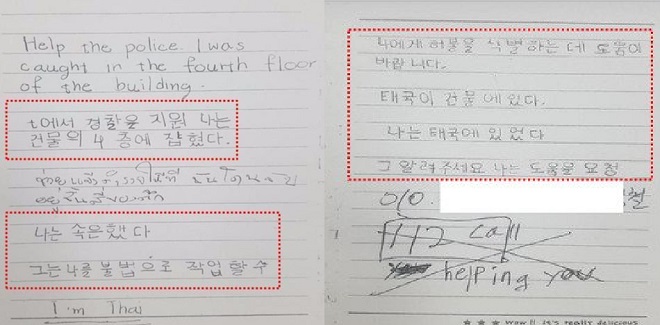 Help the police I was
caught in the fourth floor
of the building.
t에서 경찰을 지원 나는
건물의 4 층에 잡혔다.
나는 속은했다
그는 나를 불법으로 작업 할 수
I'm Thai
4에게 허용을 식별하는 데 도움이
바랍니다.
태국이 건물에 있다.
나는 태국에 있었다
그 알려주세요 나는 도움을 요청
010.
112 call
helping you
★ ★ ★ Wow!! It's really delicious